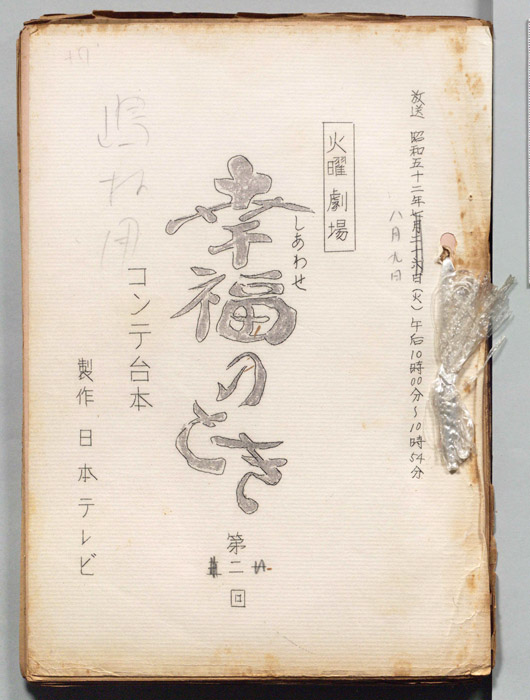 放送 昭和五十二年七月二十六日(火)午后10時00分~10時54分
八月九日
火曜劇場
しあわせ
幸福のとき
第二回
コンテ台本
製作 日本テレビ